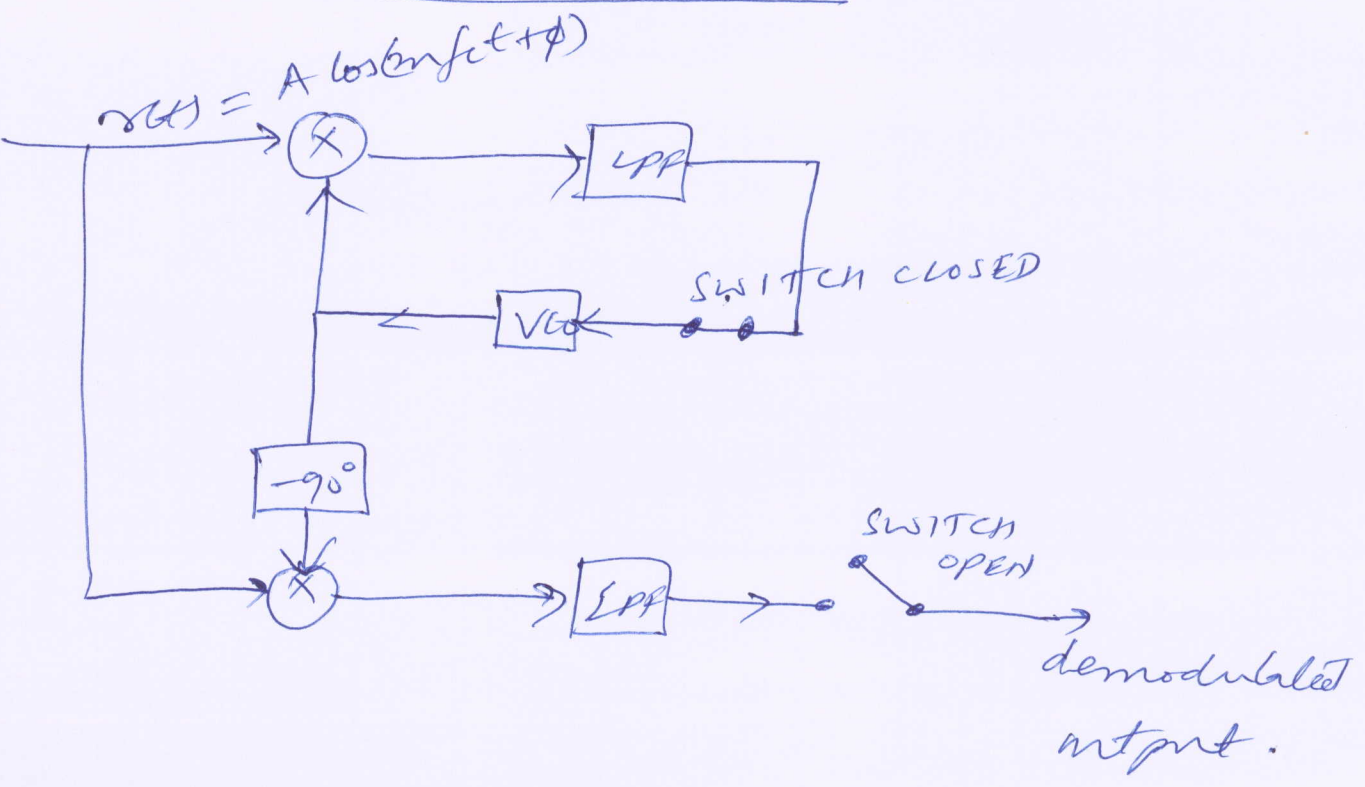 r(t) = A cos(2πfct+φ)
X
LPF
SWITCH CLOSED
VCO
-90°
SWITCH
OPEN
X
LPF
demodulated
output.